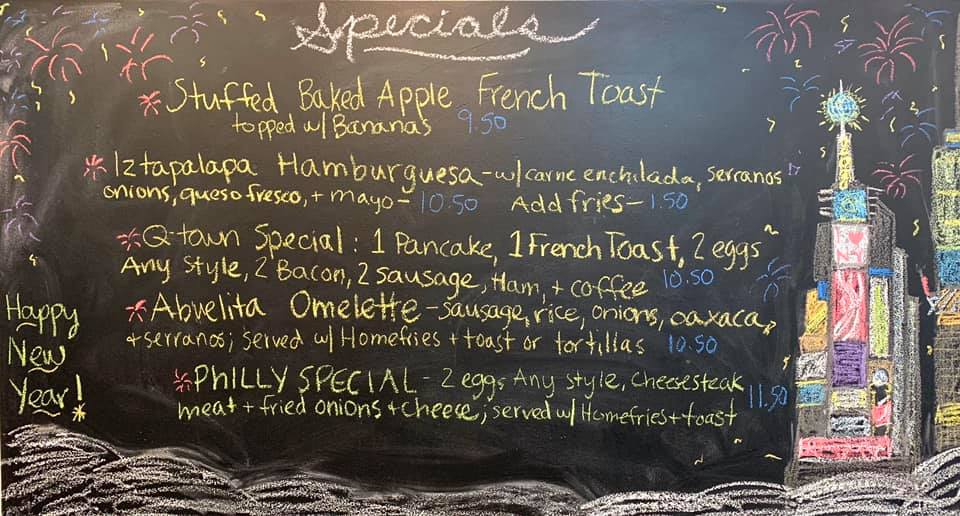 Specials
Stuffed Baked Apple French Toast
topped w/ Bananas 9.50
Iztapalapa Hamburguesa - w/ carne enchilada, serranos
onions, queso fresco, + mayo - 10.50 Add fries - 1.50
Q-town Special: 1 Pancake, 1 French Toast, 2 eggs
Any style, 2 Bacon, 2 sausage, Ham, + coffee 10.50
Abuelita Omelette - sausage, rice, onions, oaxaca,
+ serranos; served w/ Homefries + toast or tortillas 10.50
PHILLY SPECIAL - 2 eggs Any style, cheesesteak
meat + fried onions + cheese; served w/ Homefries + toast 11.50
Happy
New
Year!
I ♥
NY